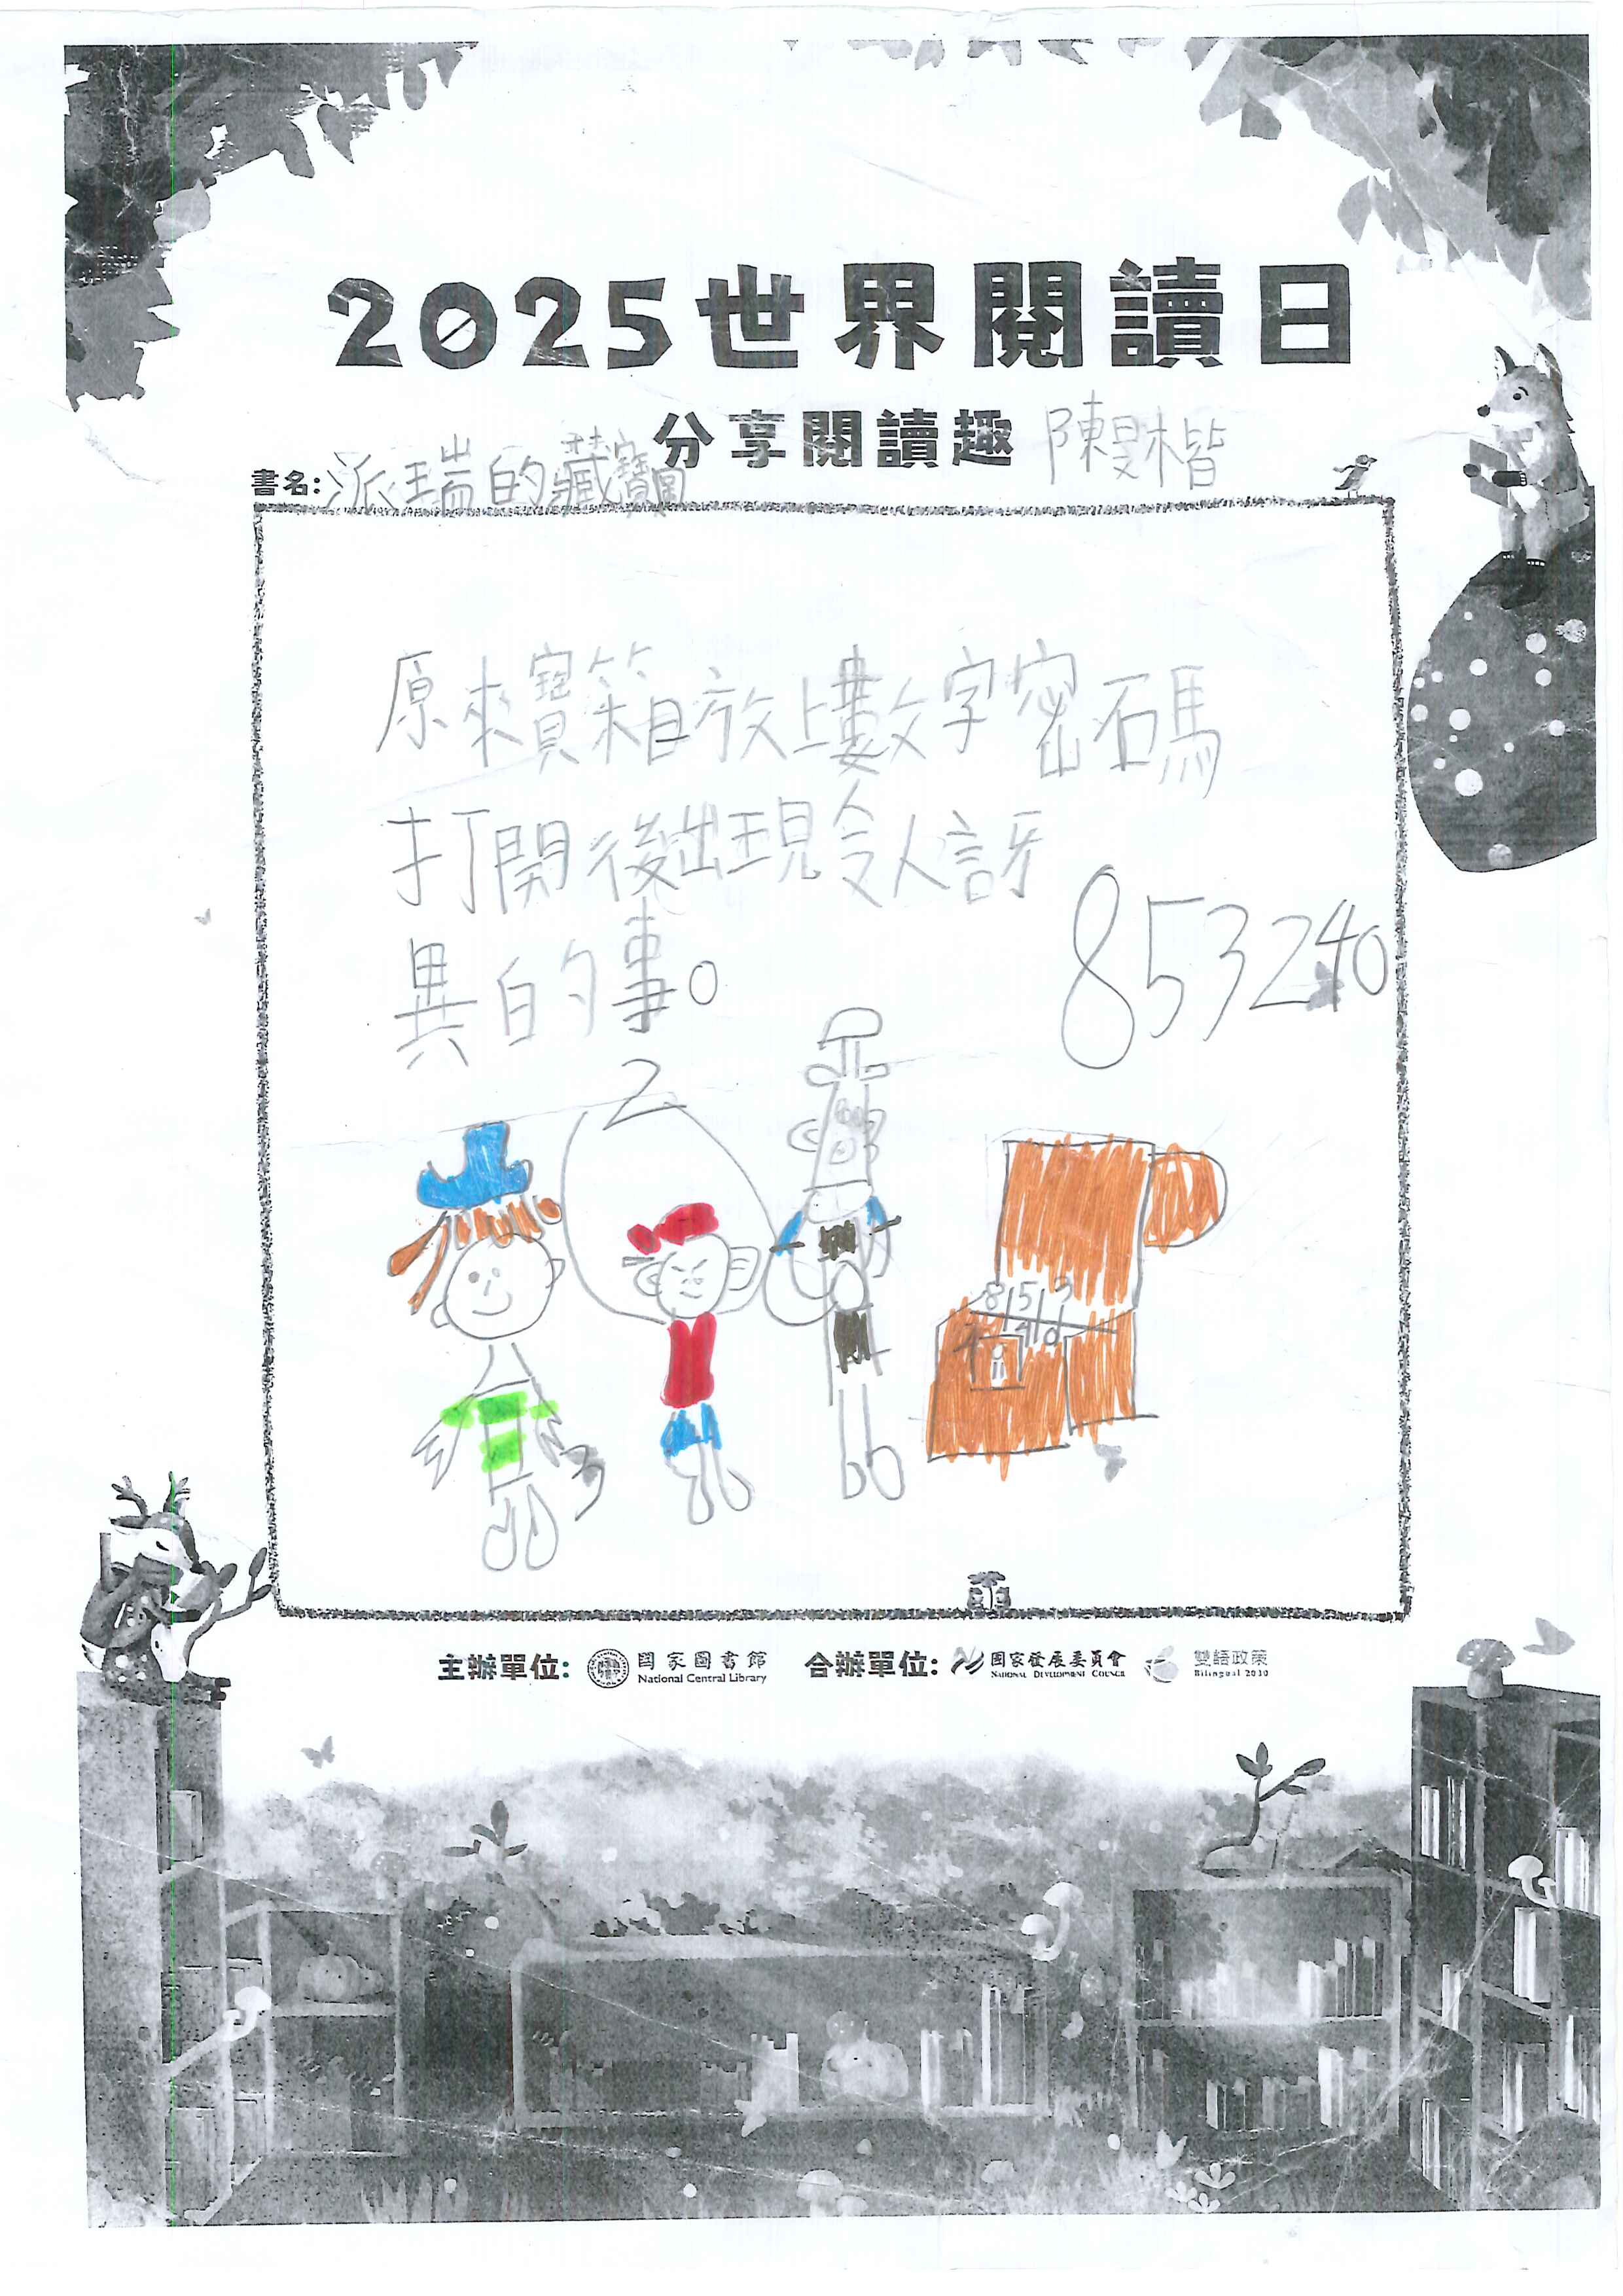 2025世界閱讀日
分享閱讀趣 陳旻楷
書名: 派瑞的藏寶圖
原來寶箱放上數字密碼
打開後出現令人訝
異的事。
853240
2
8 5 3
2 4 0
主辦單位: 國家圖書館 National Central Library 合辦單位: 國家發展委員會 NATIONAL DEVELOPMENT COUNCIL 雙語政策 Bilingual 2030